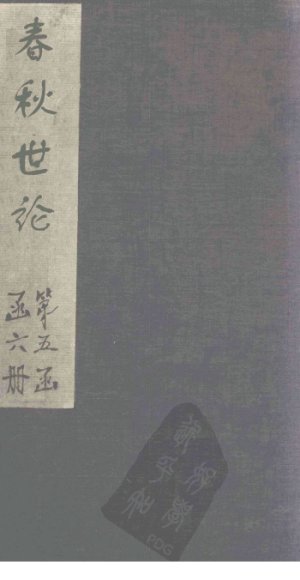 春秋世论
第五函
函六册
PDG